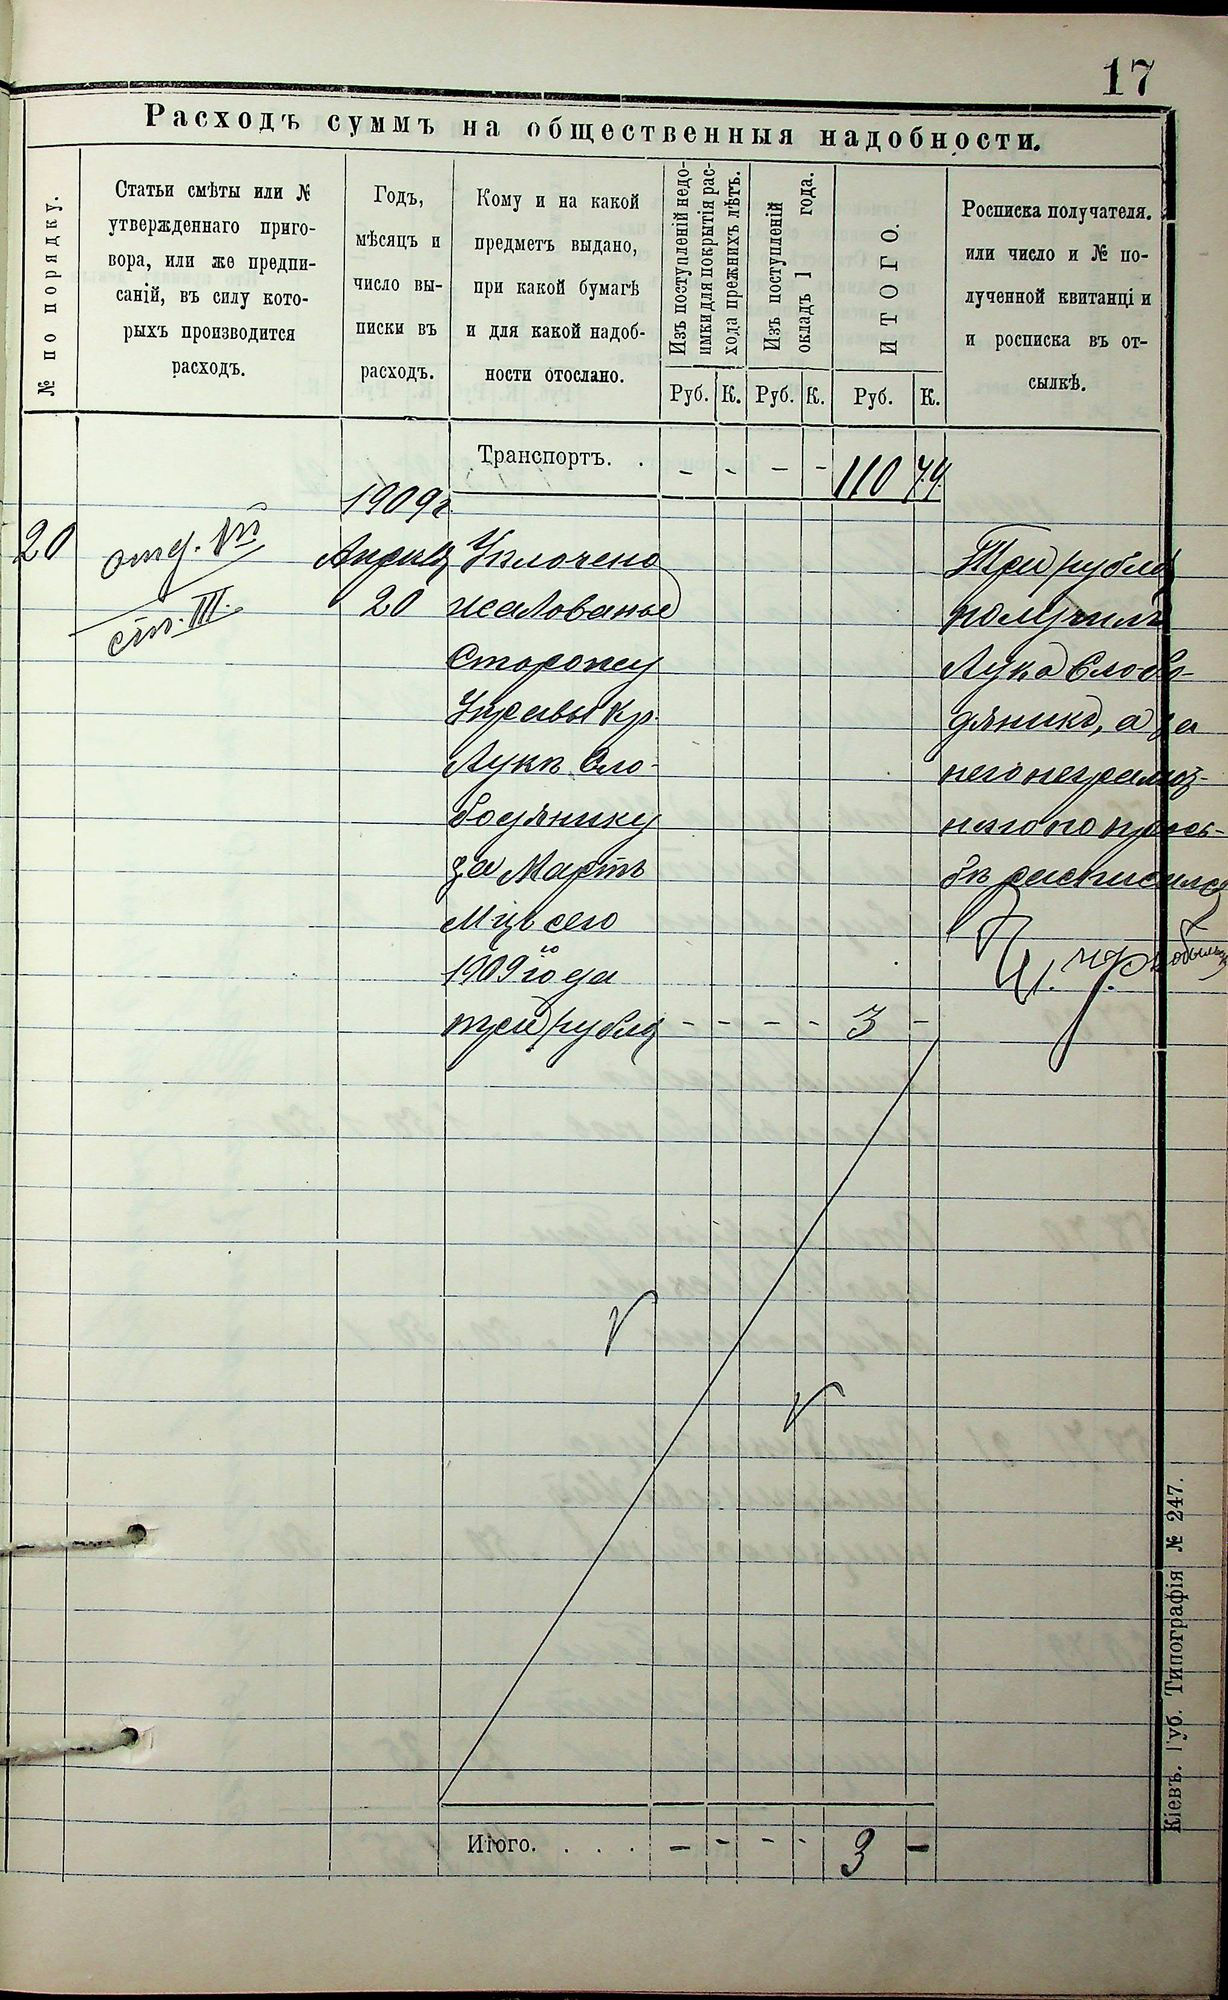 17
Расходъ суммъ на общественныя надобности.
№ по порядку.
Статьи смѣты или №
утвержденнаго приго-
вора, или же предпи-
саній, въ силу кото-
рыхъ производится
расходъ.
Годъ,
мѣсяцъ и
число вы-
писки въ
расходъ.
Кому и на какой
предметъ выдано,
при какой бумагѣ
и для какой надоб-
ности отослано.
Изъ поступленій недо-
имки для покрытія рас-
хода прежнихъ лѣтъ.
Изъ поступленій
окладъ 1 года.
ИТОГО.
Росписка получателя.
или число и № по-
лученной квитанці и
и росписка въ от-
сылкѣ.
Руб. К. Руб. К. Руб. К.
Транспортъ. . - - - - 110 74
1909г
20
отд. VII
ст. III.
Апрѣль
20
Уплочено
жалованье
Сторожу
Управы Кр.
Лукѣ Сло-
бодянику
за Мартъ
М-цъ сего
1909го года
три рубля - - - - 3 -
Три рубля
получилъ
Лука Слобо-
дяникъ, а за
него неграмот-
наго по прось-
бѣ расписался
Итого. . . . - - - - 3 -
Кіевъ. Губ. Типографія № 247.